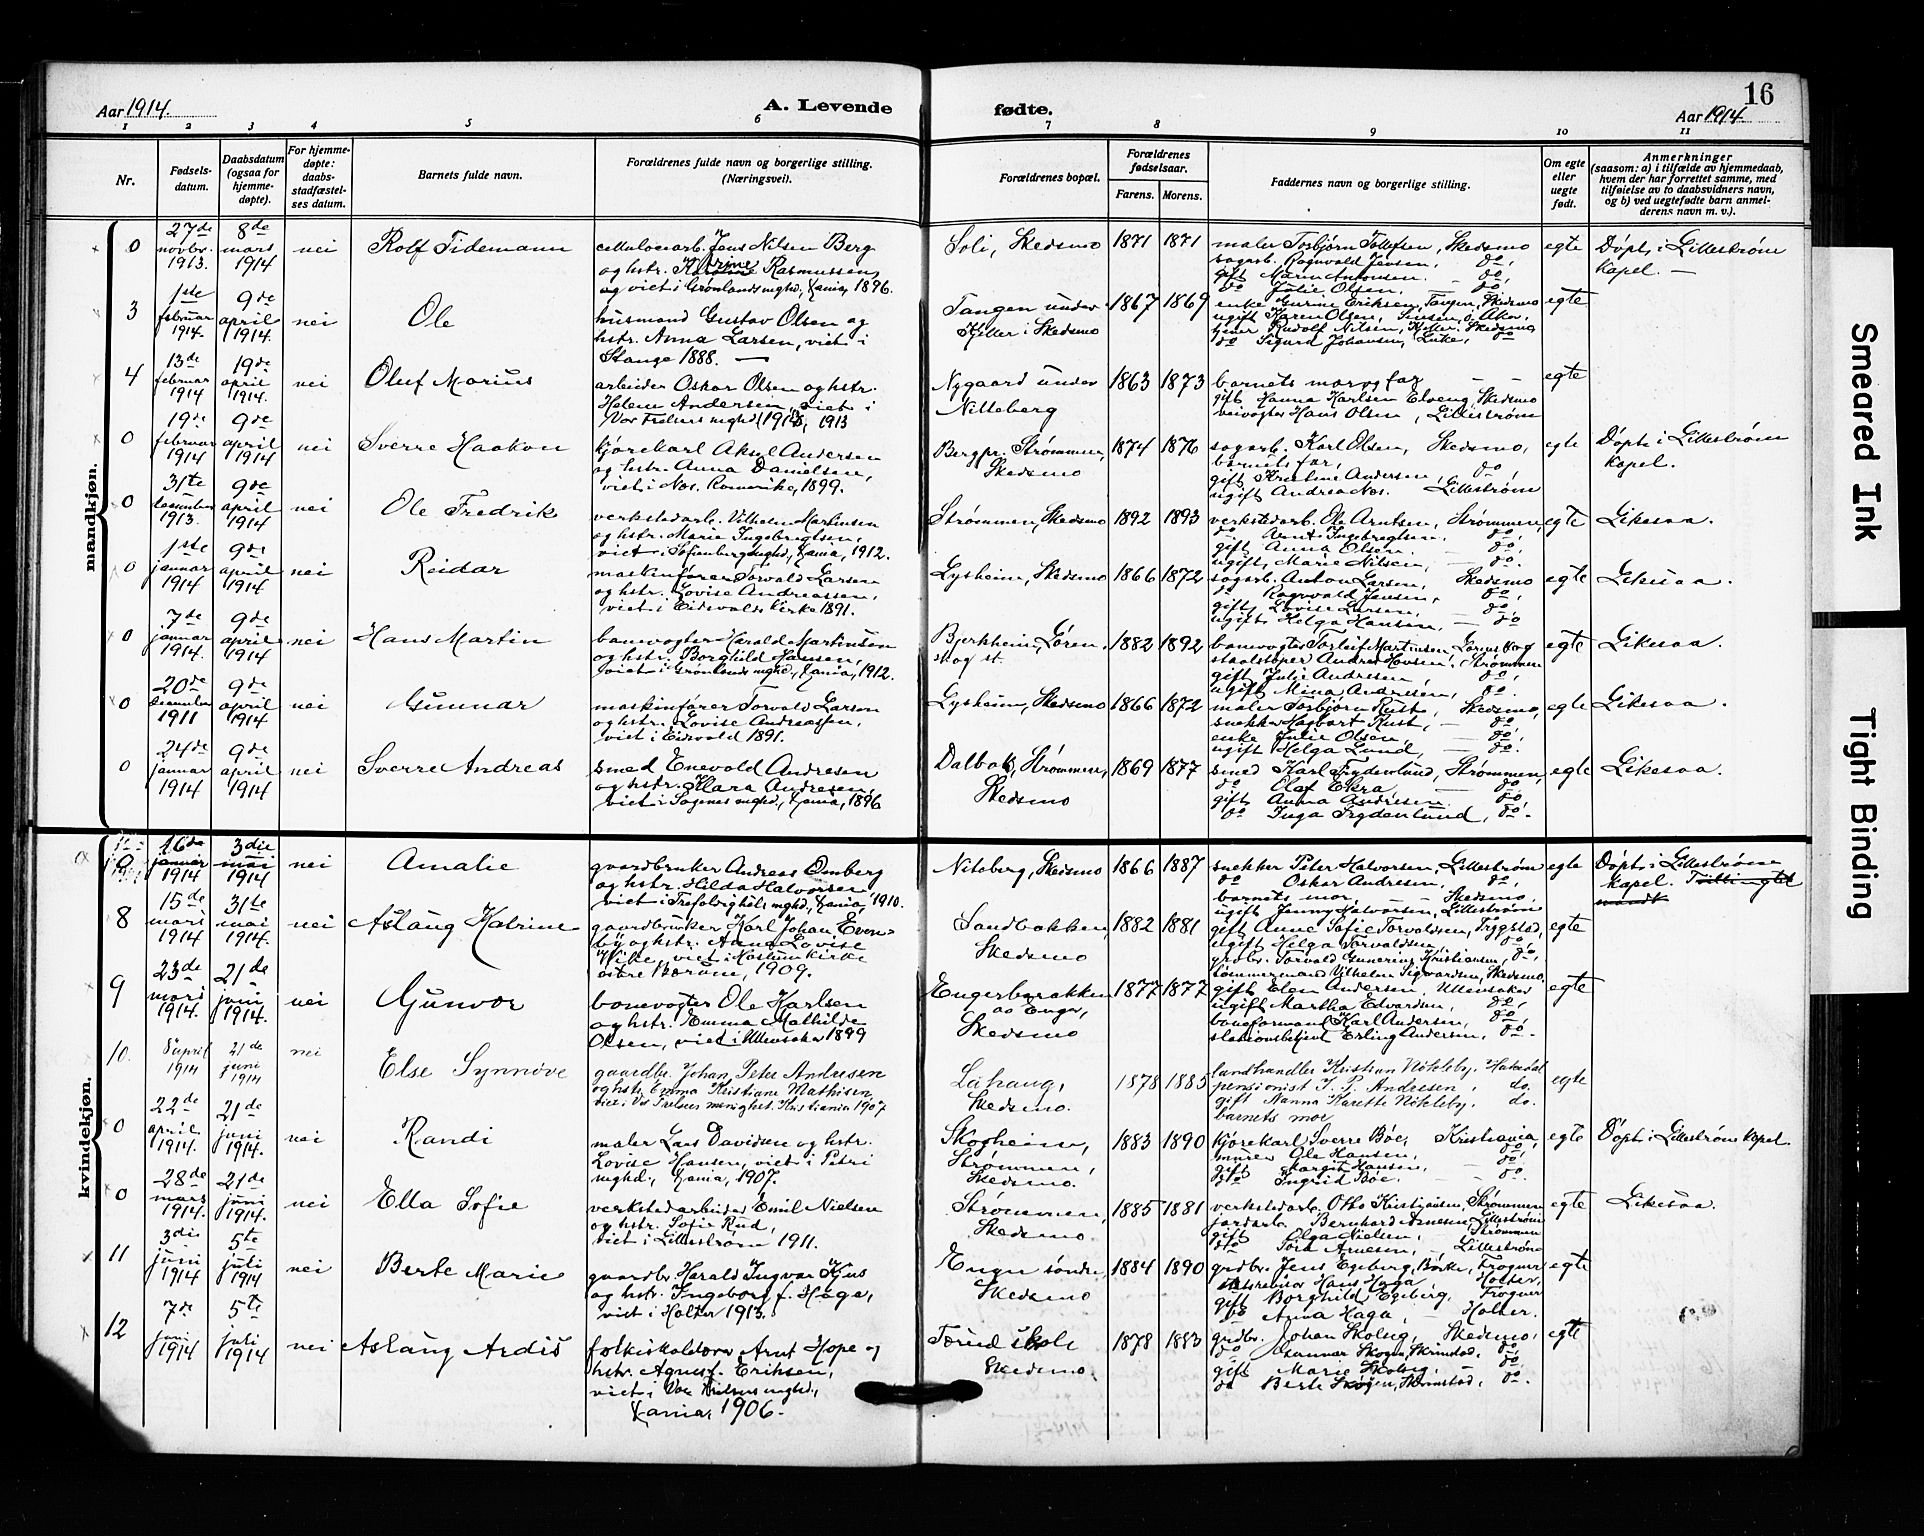 16
Aar 1914.
A. Levende
fødte.
Aar 1914.
1 2 3 4 5 6 7 8 9 10 11
Nr.
Fødsels-
datum.
Daabsdatum
(ogsaa for
hjemme-
døpte).
For hjemme-
døpte:
daabs-
stadfæstel-
ses datum.
Barnets fulde navn.
Forældrenes fulde navn og borgerlige stilling.
(Næringsvei).
Forældrenes bopæl.
Forældrenes
fødselsaar.
Farens. Morens.
Faddernes navn og borgerlige stilling.
Om egte
eller
uegte
født.
Anmerkninger
(saasom: a) i tilfælde av hjemmedaab,
hvem der har forrettet samme, med
tilføielse av to daabsvidners navn,
og b) ved uegtefødte barn anmel-
derens navn m. v.).
mandkjøn.
0
27de
novbr.
1913.
8de
mars
1914
nei
Rolf Tidemann
cellulosearb. Jens Nilsen Berg
og hstr. Rasmussen,
og viet i Grønlands mghd, Kania, 1896.
Soli, Skedsmo
1871 1871
maler Torbjørn Tollefsen, Skedsmo
sagarb. Ragnvald Jensen, do,
gift Marin Antonsen. do,
do Julie Olsen, do,
egte
Døpt i Lillestrøm
Kapel. —
3
1ste
februar
1914.
9de
april
1914.
nei
Ole
husmand Gustav Olsen og
hstr. Anna Larsen, viet i
Stange 1888. —
Tangen under
Kjeller i Skedsmo
1867 1869
enke Gurine Eriksen, Tangen, Skedsmo
ugift Karen Olsen,
tjener Rudolf Nilsen, Kjeller, Skedsmo
do Sigurd Johansen, do
egte
4
13de
februar
1914
19de
april
1914.
nei
Oluf Marius
arbeider Oskar Olsen og hstr.
Helene Andersen, viet i
Vor Frelsers mghd, 1913
Nygaard under
Nitteberg
1863 1873
barnets mor og far — —
gift Hanna Karlsen Elveng, Skedsmo
veivogter Hans Olsen, Lillestrøm
egte
0
19de
februar
1914
9de
april
1914
nei
Sverre Haakon
kjørekarl Aksel Andersen
og hstr. Anna Danielsen,
viet i Nes, Romerike, 1899.
Bergpr. Strømmen,
Skedsmo
1874 1876
sagarb. Karl Olsen, Skedsmo,
barnets far,
gift Kristine Andersen, do,
ugift Andrea Nes. Lillestrøm
egte
Døpt i Lillestrøm
Kapel.
0
31te
december
1913.
9de
april
1914
nei
Ole Fredrik
verkstedarb. Vilhelm Martinsen
og hstr. Marie Ingebregtsen,
viet i Sofienberg mghd, Kania, 1912.
Strømmen, Skedsmo
1892 1893
verkstedarb. Ole Arntsen, Strømmen,
do Arnt Ingebregtsen. do,
gift Anna Olsen. — do,
ugift Marie Nilsen, — do,
egte
Likesaa.
0
1ste
januar
1914
9de
april
1914
nei
Reidar
maskinfører Torvald Larsen
og hstr. Lovise Andreassen,
viet i Eidsvolds kirke 1891.
Lysheim, Skedsmo
1866 1872
sagarb. Anton Larsen, Skedsmo
do Ragnvald Jensen, do,
gift Lovise Larsen, — do,
ugift Helga Hansen, — do
egte
Likesaa.
0
7de
januar
1914.
9de
april
1914
nei
Hans Martin
banevogter Harald Martinsen
og hstr. Borghild Hansen,
viet i Grønlands mghd, Kania, 1912.
Bjerkheim, Løren-
skog st.
1882 1892
banevogter Torleif Martinsen, Lørenskog
staalstøper Andreas Hovsen, Strømmen
gift Julie Andresen, do,
ugift Mina Andresen, do.
egte
Likesaa.
0
20de
december
1911
9de
april
1914
nei
Gunnar
maskinfører Torvald Larsen
og hstr. Lovise Andreassen,
viet i Eidsvold 1891.
Lysheim, Skedsmo
1866 1872
maler Torbjørn Rust, Skedsmo,
snekker Hagbart Rust, — do,
enke Julie Olsen, — do,
ugift Helga Lund, — do.
egte
Likesaa.
0
24de
januar
1914
9de
april
1914
nei
Sverre Andreas
smed Enevold Andresen
og hstr. Klara Andresen,
viet i Sagenes mghd, Kania, 1896
Dalbak, Strømmen,
Skedsmo
1869 1877
smed Karl Frydenlund, Strømmen,
do Olaf Ekra do,
gift Anna Andresen. do,
do Inga Frydenlund, do.
egte
Likesaa.
kvindekjøn.
0
16de
januar
1914
3die
mai
1914
nei
Amalie
gaardbruker Andreas Omberg
og hstr. Hilda Halvorsen
viet i Trefoldigheds mghd, Kania, 1910.
Niteberg, Skedsmo
1866 1887
snekker Peter Halvorsen, Lillestrøm
do Oskar Andresen, do,
barnets mor, — Skedsmo,
ugift Jenny Halvorsen, Lillestrøm
egte
Døpt i Lillestrøm
Kapel.
8
15de
mars
1914
31te
mai
1914.
nei
Aslaug Katrine
gaardbruker Karl Johan Even-
by og hstr. Anna Lovise
Wike, viet i Haslum kirke
østre Bærum, 1909.
Sandbakken,
Skedsmo
1882 1881
gift Anne Sofie Torvaldsen, Trygstad,
ugift Helga Torvaldsen, do,
grdbr. Torvald Gunerius Kristiansen, do,
tømmermand Vilhelm Sigvardsen, Skedsmo.
egte
9
23de
mars
1914.
21de
juni
1914.
nei
Gunvor
banevogter Ole Karlsen
og hstr. Emma Mathilde
Olsen, viet i Ullensaker 1899
Engerbarakken
av Enger,
Skedsmo
1877 1877
gift Elen Andersen, Ullensaker
ugift Martha Edvardsen, do,
baneformand Karl Andersen, do,
stationsbetjent Erling Andersen, do.
egte
10.
8de april
1914
21de
juni
1914
nei
Else Synnøve
gaardbr. Johan Peter Andresen
og hstr. Emma Kristiane Mathisen,
viet i Vor Frelsers menighet. Kristiania 1907
Lahaug,
Skedsmo.
1878 1885
landhandler Kristian Nökleby, Hakadal
pensionist J. P. Andresen, do.
gift Nanna Karette Nökleby, do.
barnets mor
egte
0
22de
april
1914.
21de
juni
1914.
nei
Randi
maler Lars Davidsen og hstr.
Lovise Hansen, viet i Petri
mghd., Kania, 1907.
Skogheim,
Strømmen,
Skedsmo.
1883 1890
kjørekarl Sverre Bøe, Kristiania,
murer Ole Hansen, do,
gift Margit Hansen, — do.
do Ingrid Bøe. — do.
egte
Døpt i Lillestrøm Kapel.
0
28de
mars
1914.
21de
juni
1914.
nei
Ella Sofie
verkstedarbeider Emil Nielsen
og hstr. Sofie Rud,
viet i Lillestrøm 1911.
Strømmen,
Skedsmo.
1885 1881
verkstedarb. Otto Kristiansen, Strømmen
jordarb. Bernhard Arnesen, Lillestrøm
gift Olga Nielsen, Strømmen
do Tora Arnesen, — Lillestrøm
egte
Likesaa.
11
3die
juni
1914
5te
juli
1914
nei
Berte Marie
gaardbr. Harald Ingvar Kjus
og hstr. Ingeborg f. Haga,
viet i Holter 1913.
Enger søndre,
Skedsmo
1884 1890
grdbr. Jens Egeberg, Børke, Frogner
Hans Haga, Holter,
gift Borghild Egeberg, Frogner
do Anna Haga, — Holter.
egte
12
7de
juni
1914
5te
juli
1914
nei
Aslaug Ardis
folkeskolelærer Arnt Hope og
hstr. Agnes f. Eriksen,
viet i Vor Frelsers mghd.,
Kania, 1906.
Tærud skole
Skedsmo
1878 1883
grdbr. Johan Skolseg, Skedsmo,
do Gunnar Skogen, Skrimstad, do,
gift Marie Skolseg, — do,
do Berte Skøjen, Skrimstad, do.
egte
Smeared Ink
Tight Binding